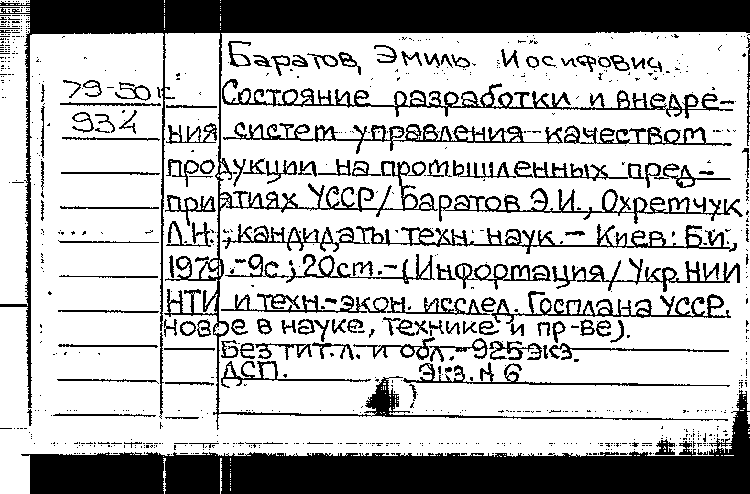 Баратов, Эмиль Иосифович
79-50к Состояние разработки и внедре-
934 ния систем управления качеством
продукции на промышленных пред-
приятиях УССР/ Баратов Э.И., Охретчук
Л.Н., кандидаты техн. наук. - Киев: Б.и,
1979.-9с.; 20cm.-(Информация/ Укр.НИИ
НТИ и техн.-экон. исслед. Госплана УССР.
Новое в науке, технике и пр-ве).
Без тит.л. и обл.-925экз.
ДСП. Экз. N 6